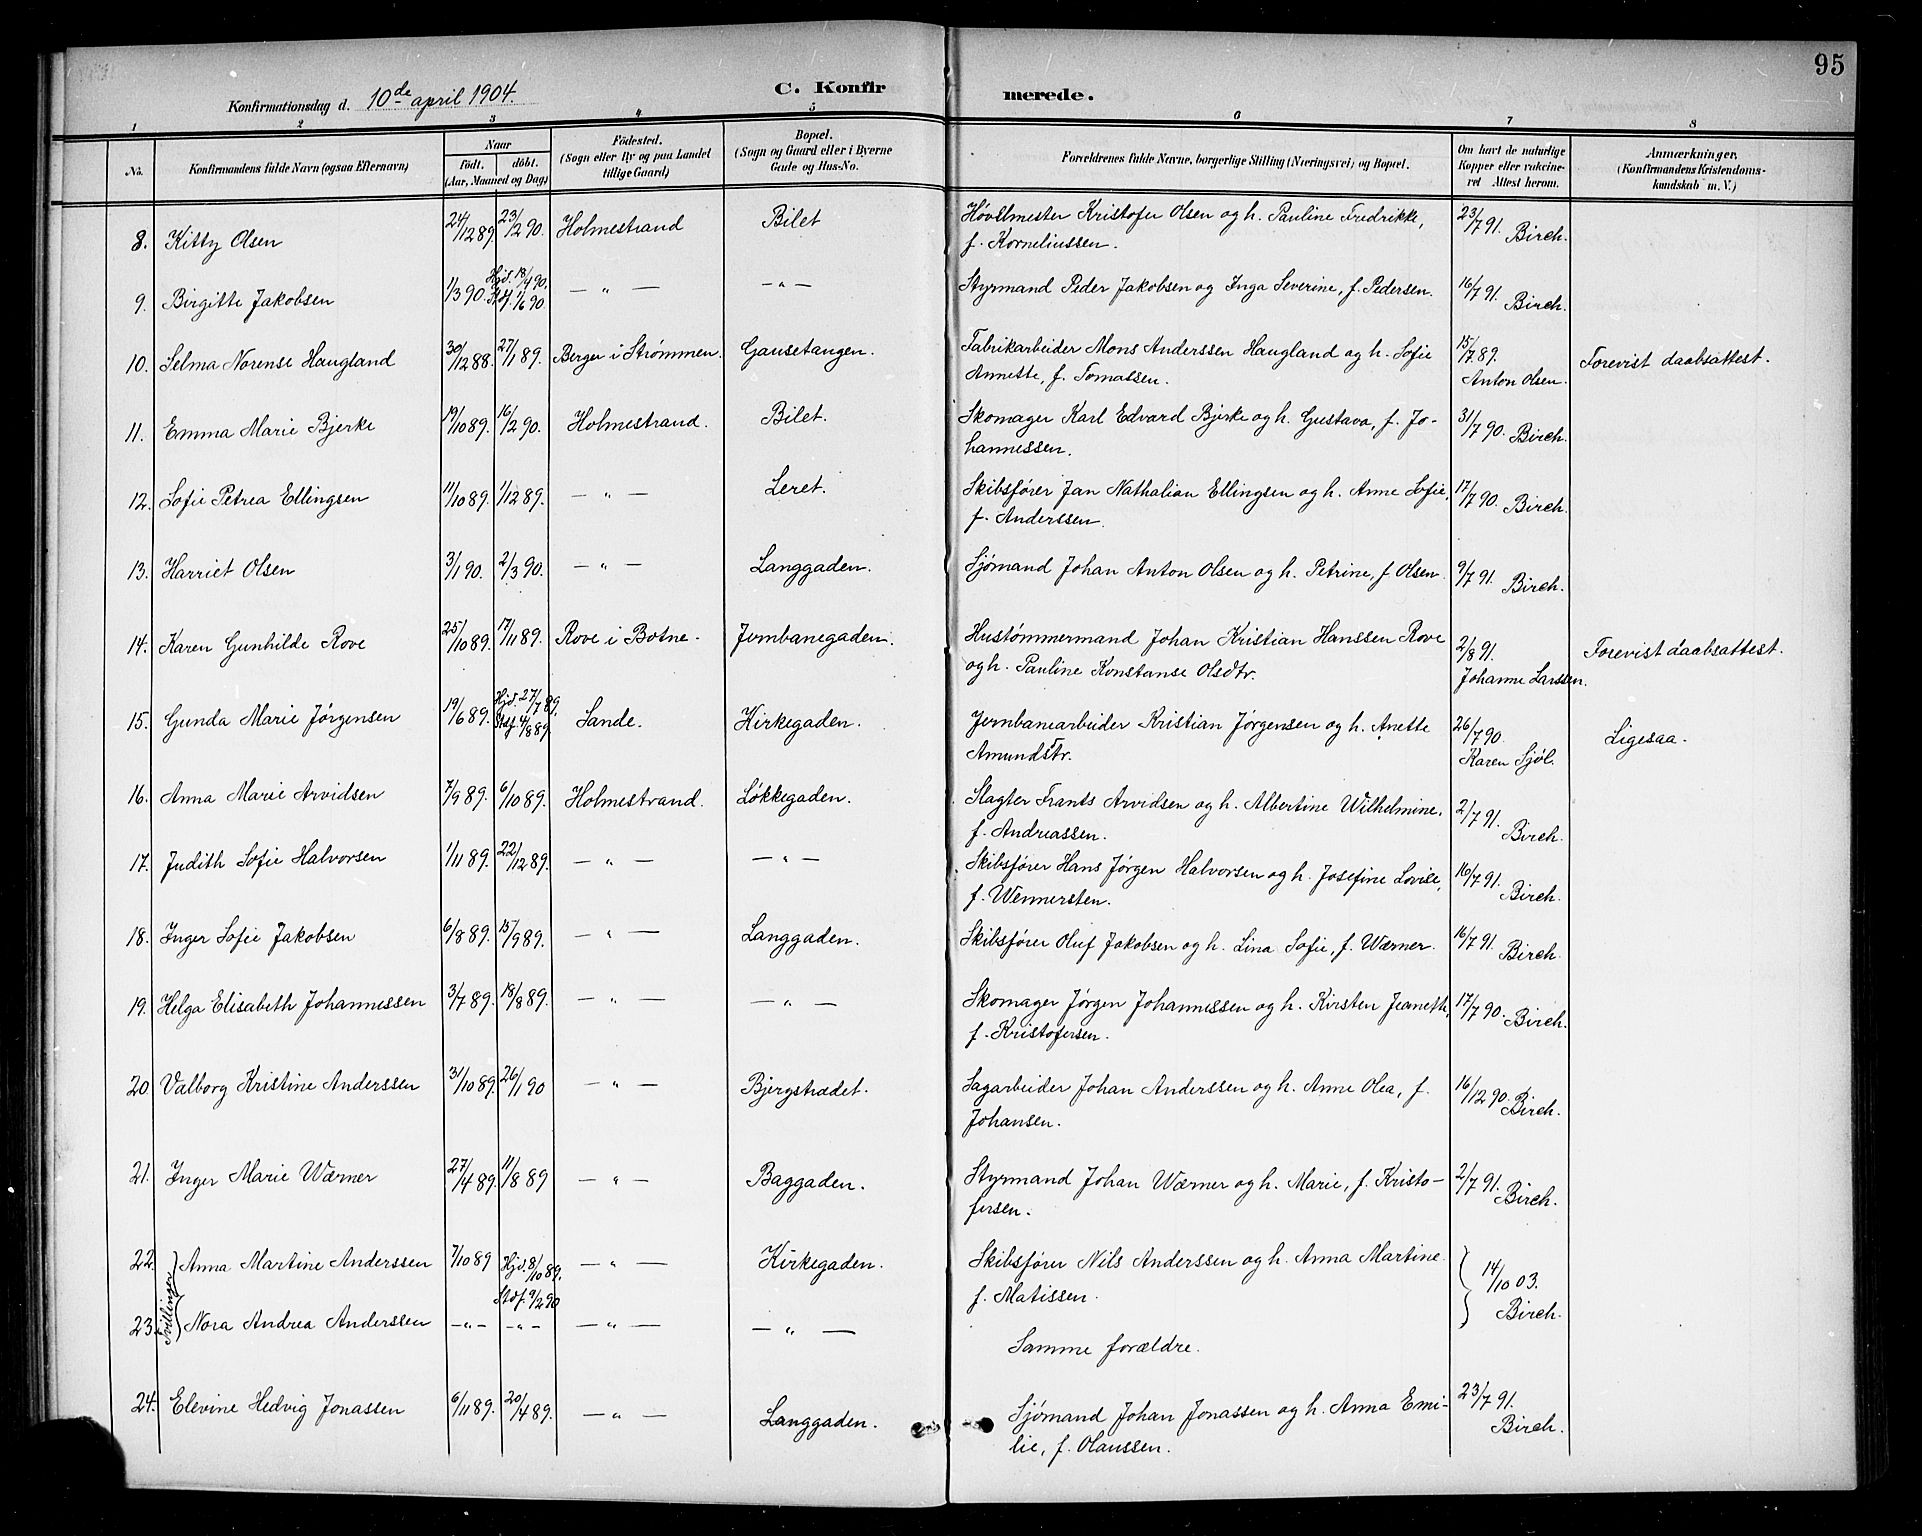 95
Konfirmationsdag d. 10de april 1904. C. Konfirmerede.
1 2 3 4 5 6 7 8
No. Konfirmandens fulde Navn (ogsaa Efternavn) Naar födt. döbt. (Aar, Maaned og Dag) Födested. (Sogn eller By og paa Landet tillige Gaard) Bopæl. (Sogn og Gaard eller i Byerne Gade og Hus-No. Forældrenes fulde Navne, borgerlige Stilling (Næringsvei) og Bopæl. Om havt de naturlige Kopper eller vakcineret Attest herom. Anmærkninger. (Konfirmandens Kristendomskundskab m. V.)
8. Kitty Olsen 24/12 89. 23/2 90. Holmestrand Bilet Høvelmester Kristofer Olsen og h. Pauline Fredrikke, 23/7 91. Birch.
f. Korneliussen.
9. Birgitte Jakobsen 1/3 90. Hjd. 18/4 90. Stdf. 1/6 90. — " — — " — Styrmand Peder Jakobsen og Inga Severine, f. Pedersen. 16/7 91. Birch.
10. Selma Norense Haugland 30/12 88. 27/1 89. Berger i Strømmen. Gausetangen. Fabrikarbeider Mons Anderssen Haugland og h. Sofie 15/7 89. Forevist daabsattest.
Annette, f. Tomassen. Anton Olsen.
11. Emma Marie Bjerke 19/10 89. 16/2 90. Holmestrand. Bilet. Skomager Karl Edvard Bjerke og h. Gustava, f. Jo- 31/7 90. Birch.
hannessen.
12. Sofie Petrea Ellingsen 11/10 89. 1/12 89. — " — Leret. Skibsfører Jan Nathalian Ellingsen og h. Anne Sofie, 17/7 90. Birch.
f. Anderssen.
13. Harriet Olsen 3/1 90. 2/3 90. — " — Langgaden. Sjømand Johan Anton Olsen og h. Petrine, f. Olsen. 9/7 91. Birch.
14. Karen Gunhilde Rove 25/10 89. 17/11 89. Rove i Botne. Jernbanegaden. Hustømmermand Johan Kristian Hanssen Rove 2/8 91. Forevist daabsattest.
og h. Pauline Konstanse Olsdtr. Johanne Larssen.
15. Gunda Marie Jørgensen 19/6 89. Hjd. 27/7 89. Stdf. 4/8 89. Sande. Kirkegaden. Jernbanearbeider Kristian Jørgensen og h. Anette 26/7 90. Ligesaa.
Amundstr. Karen Sjøl.
16. Anna Marie Arvidsen 7/9 89. 6/10 89. Holmestrand. Løkkegaden. Slagter Frants Arvidsen og h. Albertine Wilhelmine, 2/7 91. Birch.
f. Andreassen.
17. Judith Sofie Halvorsen 1/11 89. 22/12 89. — " — — " — Skibsfører Hans Jørgen Halvorsen og h. Josefine Lovise, 16/7 91. Birch.
f. Wennersten.
18. Inger Sofie Jakobsen 6/8 89. 15/9 89. — " — Langgaden. Skibsfører Oluf Jakobsen og h. Lina Sofie, f. Wærner. 16/7 91. Birch.
19. Helga Elisabeth Johannessen 3/7 89. 18/8 89. — " — — " — Skomager Jørgen Johannessen og h. Kirsten Jeaneth, 17/7 90. Birch.
f. Kristofersen.
20. Valborg Kristine Anderssen 31/10 89. 26/1 90 — " — Bjergstrædet. Sagarbeider Johan Anderssen og h. Anne Olea, f. 16/12 90. Birch.
Johansen.
21. Inger Marie Wærner 27/4 89. 11/8 89 — " — Baggaden. Styrmand Johan Wærner og h. Marie, f. Kristo- 2/7 91. Birch.
fersen.
22. Anna Martine Anderssen 7/10 89 Hjd. 8/10 89. Stdf. 9/2 90 — " — Kirkegaden. Skibsfører Nils Anderssen og h. Anna Martine 14/10 03. Birch.
f. Matissen.
Tvillinger
23. Nora Andrea Anderssen — " — — " — — " — — " — Samme forældre.
24. Elevine Hedvig Jonassen 6/11 89. 20/4 89. — " — Langgaden. Sjømand Johan Jonassen og h. Anna Emi- 23/7 91. Birch.
lie, f. Olaussen.